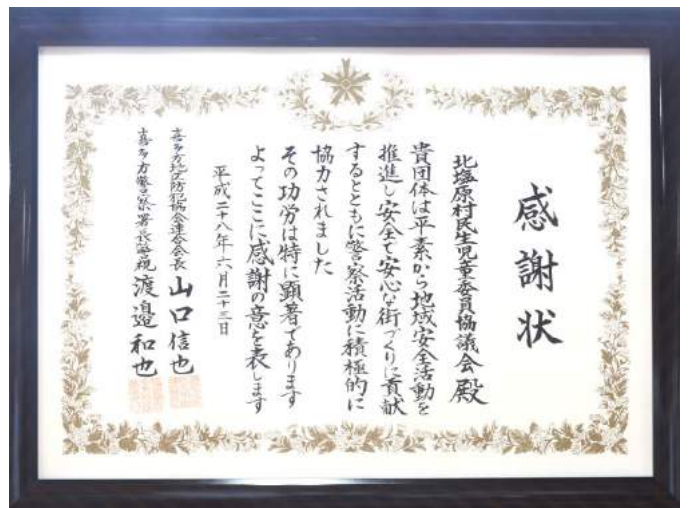 感謝状
北塩原村民生児童委員協議会殿
貴団体は平素から地域安全活動を
推進し安全で安心な街づくりに貢献
するとともに警察活動に積極的に
協力されました
その功労は特に顕著であります
よってここに感謝の意を表します
平成二十八年六月二十三日
喜多方地区防犯協会連合会長 山口信也
喜多方警察署長警視 渡邉和也